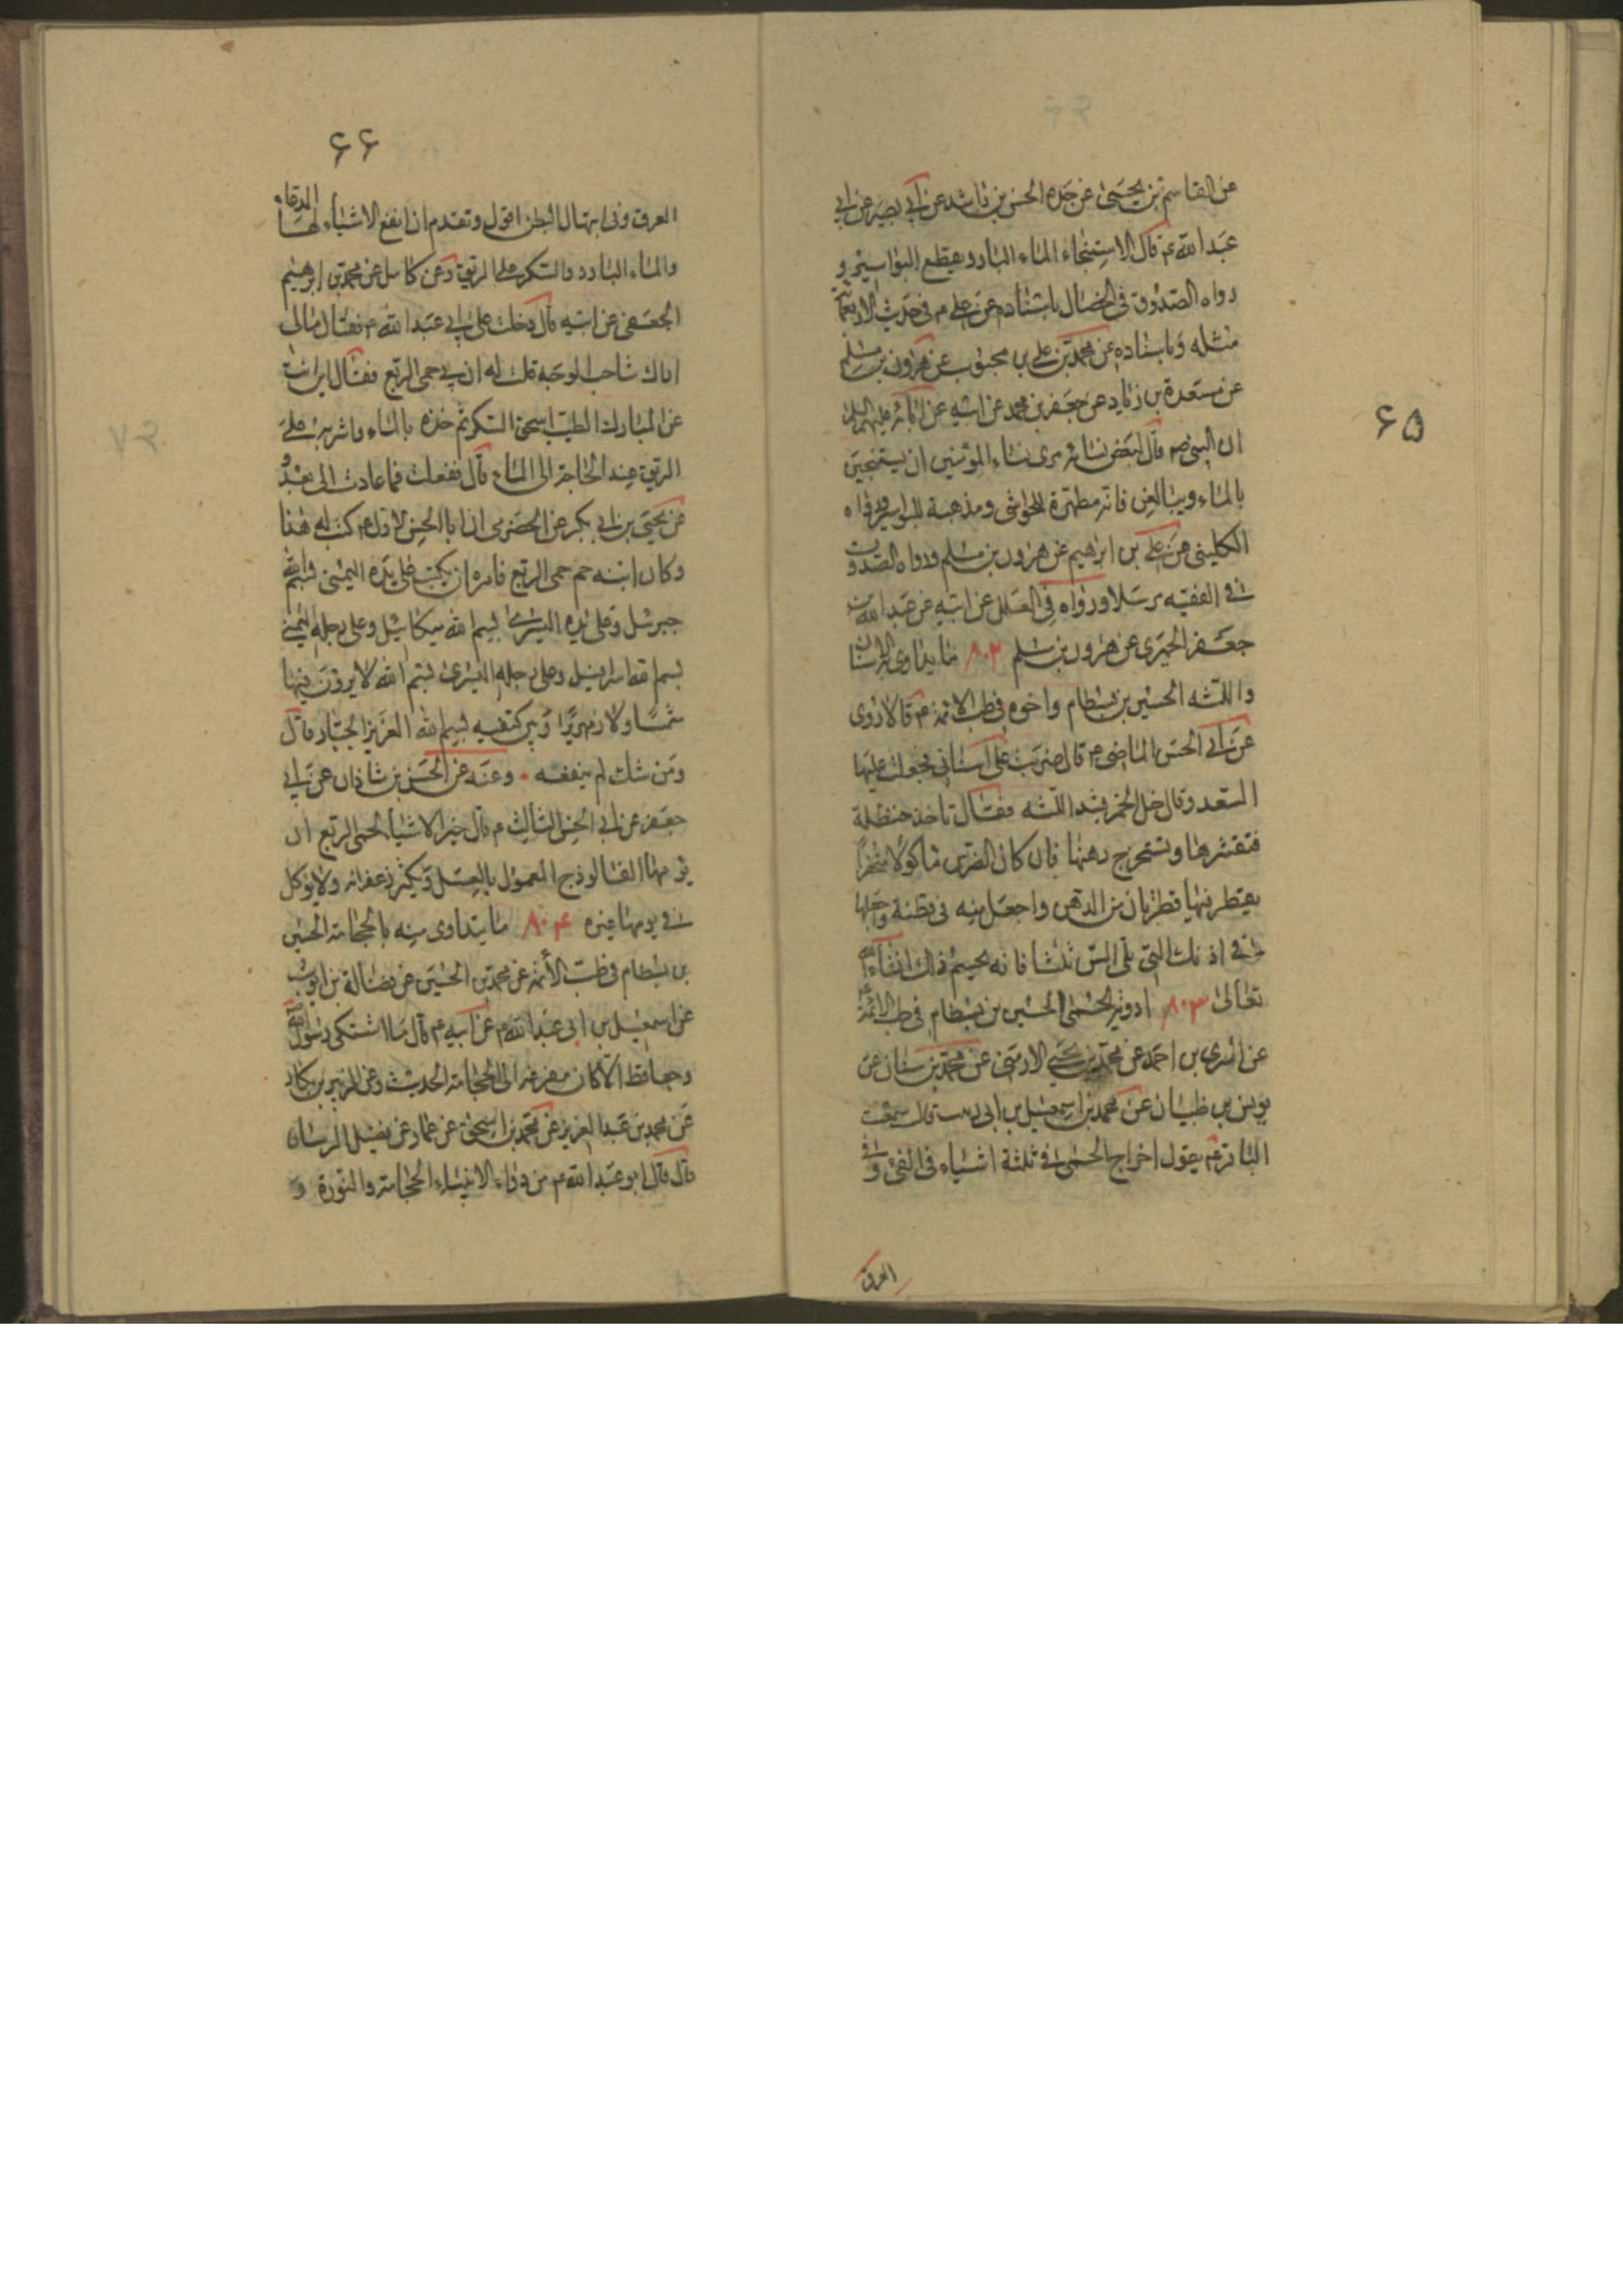 ۶۵
عن القاسم بن يحيى عن جده الحسن بن راشد عن ابي بصير عن ابي
عبد الله ع قال الاستنجاء الماء البارد يقطع البواسير و
رواه الصدوق في الخصال باسناده عن علي م في حديث الاربعمائة
مثله وباسناده عن محمد بن علي بن محبوب عن هرون بن مسلم
عن مسعدة بن زياد عن جعفر بن محمد عن ابيه عن ابائه عليهم السلام
ان النبي ص قال لبعض نسائه مري نساء المؤمنين ان يستنجين
بالماء ويبالغن فانه مطهرة للحواشي ومذهبة للبواسير ورواه
الكليني عن علي بن ابراهيم عن هرون بن مسلم ورواه الصدوق
في الفقيه مرسلا ورواه في العلل عن ابيه عن عبد الله بن
جعفر الحميري عن هرون بن مسلم ۸۰۲ ما يداوى به الاسنان
واللثه الحسين بن بسطام واخوه في طب الائمة ع قالا روى
عن ابي الحسن الماضي ع قال ضربت علي اسناني فجعلت عليها
السعد وقال خل الخمر يشد اللثه فقال تاخذ حنظلة
فتقشرها وتستخرج دهنها فان كان الضرس ماكولا منحفرا
يقطر فيها قطرتان من الدهن واجعل منه في قطنة واجعلها
في اذنك التي تلي السن ثلثا فانه يحسم ذلك انشاء الله
تعالى ۸۰۳ ادوية الحمى الحسين بن بسطام في طب الائمة
عن السري بن احمد عن محمد بن يحيى الارمني عن محمد بن سنان عن
يونس بن ظبيان عن محمد بن اسمعيل بن ابي قال سمعت
الباقر ع يقول اخراج الحمى في ثلثة اشياء في القئ وفي
العرق
۶۶
العرق وفي اسهال البطن اقول وتقدم ان انفع الاشياء لها الدعاء
والماء البارد والسكر على الريق وعن كامل عن محمد بن ابرهيم
الجعفي عن ابيه قال دخلت على ابي عبد الله م فقال مالي
اراك شاحب الوجه قلت له ان بي حمى الربع فقال اين انت
عن المبارك الطيب اسحق السكر ثم خذه بالماء واشربه على
الريق عند الحاجة الى الماء قال ففعلت فما عادت الي بعد و
عن يحيى بن ابي بكر عن الحضرمي ان ابا الحسن الاول م كتب له هذا
وكان ابنه حم حمى الربع فامره ان يكتب على يده اليمنى بسم الله
جبرئيل وعلى يده اليسرى بسم الله ميكائيل وعلى رجله اليمنى
بسم الله اسرافيل وعلى رجله اليسرى بسم الله لا يرون فيها
شمسا ولا زمهريرا وبين كتفيه بسم الله العزيز الجبار قال
ومن شك لم ينفعه وعنه عن الحسن بن شاذان عن ابي
جعفر عن ابي الحسن الثالث م قال خير الاشياء لحمى الربع ان
يؤكل يومها الفالوذج المعمول بالعسل ويكثر زعفرانه ولا يؤكل
في يومها غيره ۸۰۴ ما يتداوى منه بالحجامة الحسين
بن بسطام في طب الائمة عن محمد بن الحسين عن فضالة بن ايوب
عن اسمعيل بن ابي عبد الله م عن ابيه م قال ما اشتكى رسول الله ص
وجعا قط الا كان مفزعه الى الحجامة الحديث وعن الزبير بن بكار
عن محمد بن عبد العزيز عن محمد بن اسحق عن عمار عن فضيل الرسان
قال قال ابو عبد الله م من دواء الانبياء الحجامة والنورة و